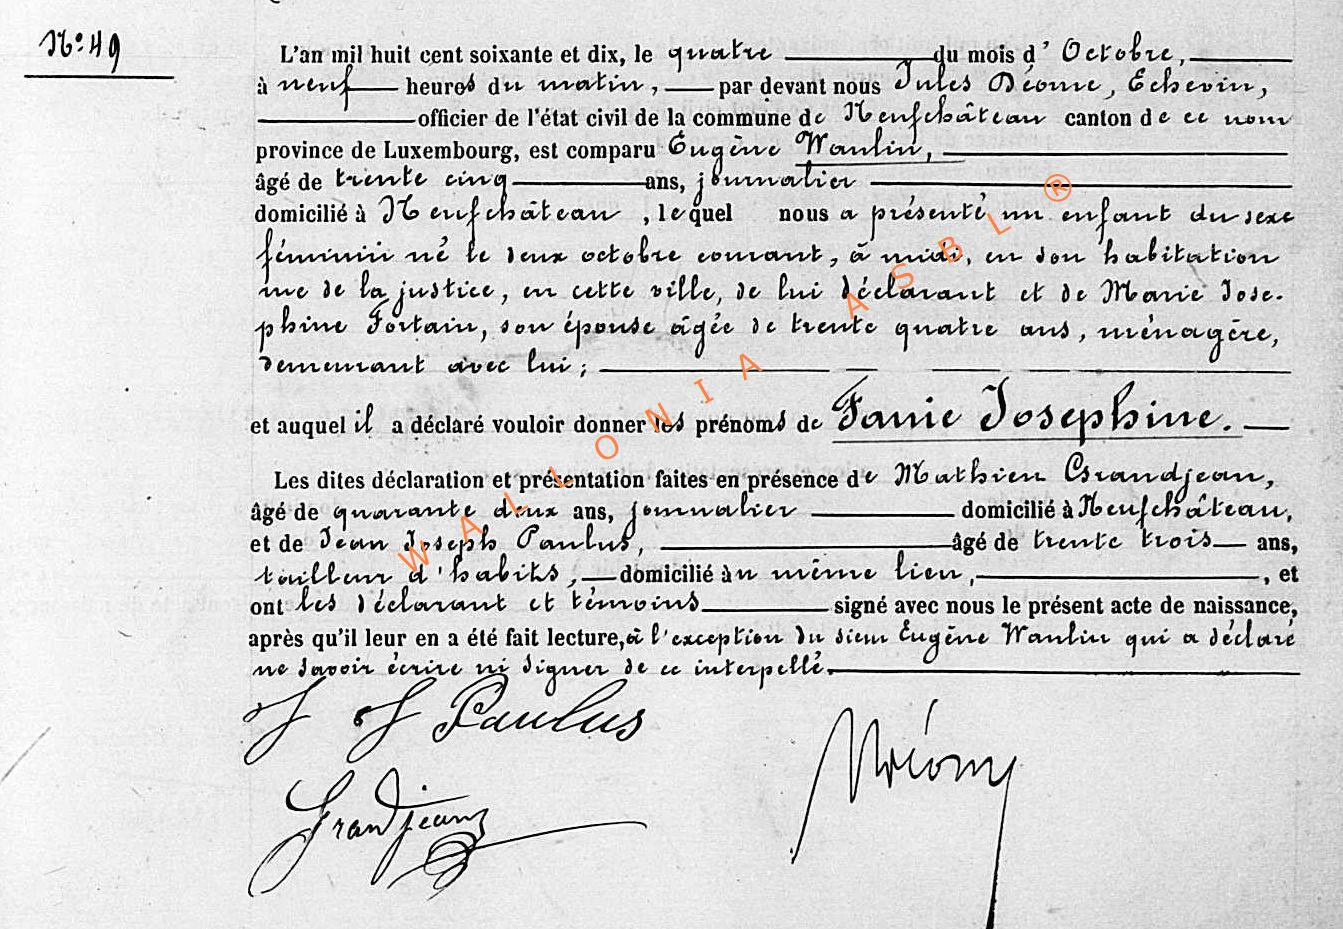 N° 49
L'an mil huit cent soixante et dix, le quatre du mois d'Octobre,
à neuf heures du matin, par devant nous Jules Déome, Echevin,
officier de l'état civil de la commune de Neufchâteau canton de ce nom
province de Luxembourg, est comparu Eugène Waulin,
âgé de trente cinq ans, journalier
domicilié à Neufchâteau, lequel nous a présenté un enfant du sexe
féminin né le deux octobre courant, à midi, en son habitation
rue de la justice, en cette ville, de lui déclarant et de Marie Jose-
phine Fortain, son épouse âgée de trente quatre ans, ménagère,
demeurant avec lui;
et auquel il a déclaré vouloir donner les prénoms de Fanie Josephine.
Les dites déclaration et présentation faites en présence de Mathieu Grandjean,
âgé de quarante deux ans, journalier domicilié à Neufchâteau,
et de Jean Joseph Paulus, âgé de trente trois ans,
tailleur d'habits, domicilié au même lieu, et
ont les déclarant et témoins signé avec nous le présent acte de naissance,
après qu'il leur en a été fait lecture, à l'exception du sieur Eugène Waulin qui a déclaré
ne savoir écrire ni signer de ce interpellé.
J J Paulus
Grandjean
WALLONIA ASBL ®